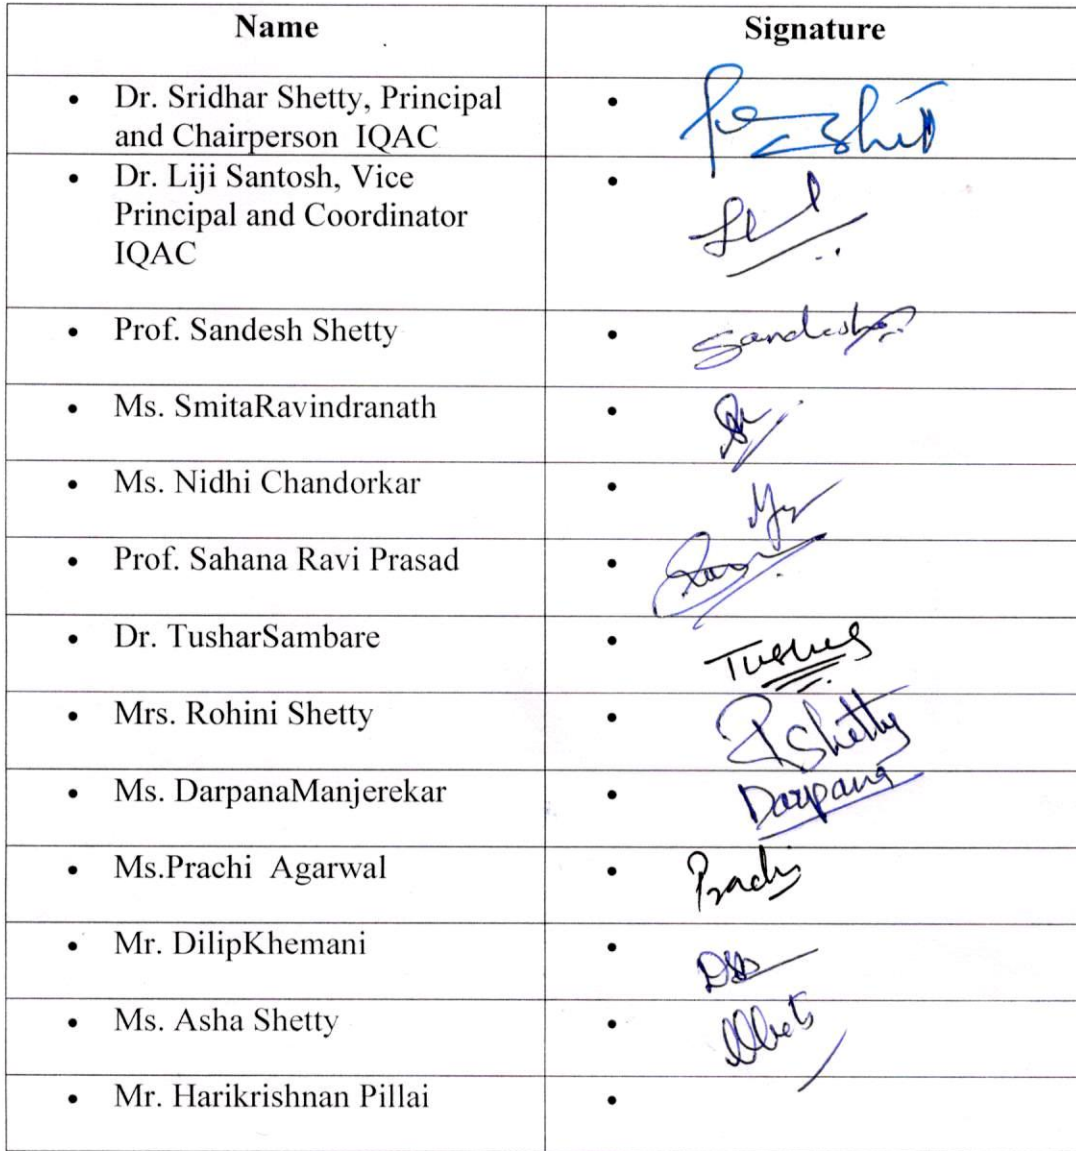 Name Signature
• Dr. Sridhar Shetty, Principal
and Chairperson IQAC •
• Dr. Liji Santosh, Vice •
Principal and Coordinator
IQAC
• Prof. Sandesh Shetty • Sandesh
• Ms. SmitaRavindranath •
• Ms. Nidhi Chandorkar •
• Prof. Sahana Ravi Prasad •
• Dr. TusharSambare • Tushar
• Mrs. Rohini Shetty • RShetty
• Ms. DarpanaManjerekar • Darpana
• Ms.Prachi Agarwal • Prachi
• Mr. DilipKhemani •
• Ms. Asha Shetty •
• Mr. Harikrishnan Pillai •